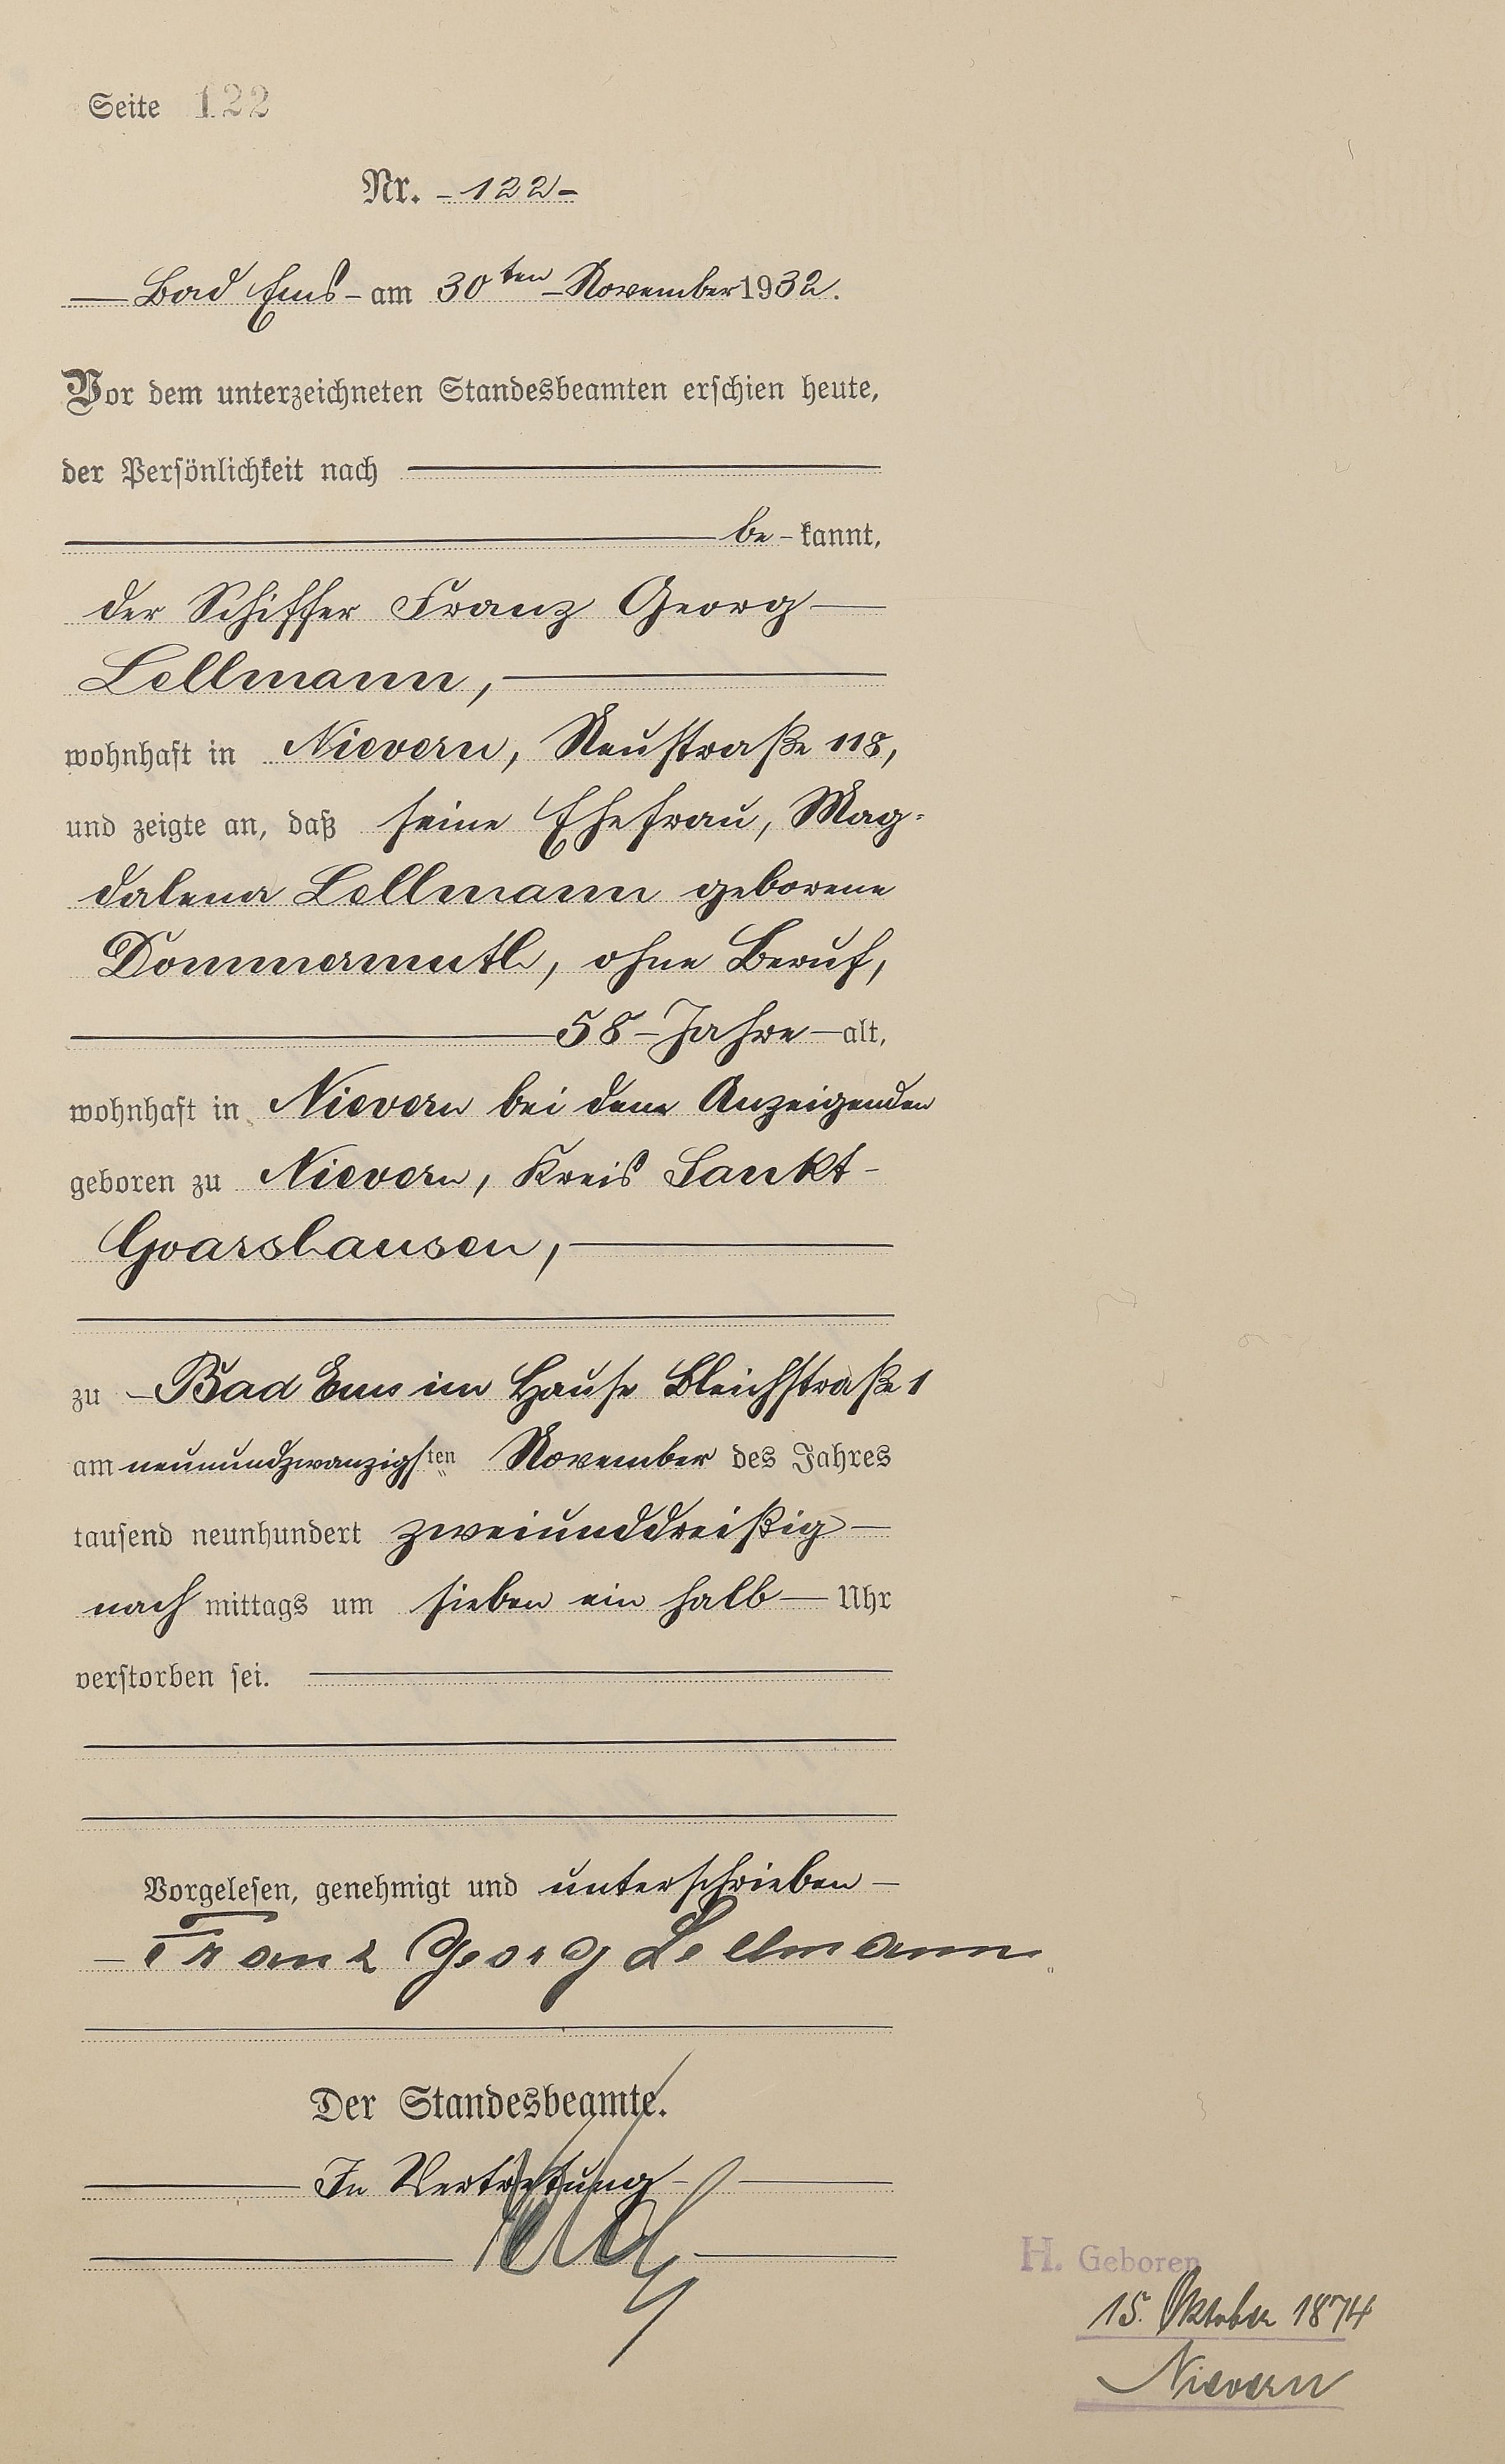 Seite 122
Nr. - 122 -
Bad Ems - am 30ten November 1932.
Vor dem unterzeichneten Standesbeamten erschien heute,
der Persönlichkeit nach
be - kannt,
der Schiffer Franz Georg
Lellmann,
wohnhaft in Nievern, Neustraße 118,
und zeigte an, daß seine Ehefrau, Mag-
dalena Lellmann geborene
Dommermuth, ohne Beruf,
58 - Jahre - alt,
wohnhaft in Nievern bei dem Anzeigenden
geboren zu Nievern, Kreis Sankt-
Goarshausen,
zu - Bad Ems im Hause Bleichstraße 1
am neunundzwanzigsten November des Jahres
tausend neunhundert zweiunddreißig
nach mittags um sieben ein halb Uhr
verstorben sei.
Vorgelesen, genehmigt und unterschrieben
Franz Georg Lellmann
Der Standesbeamte.
In Vertretung
H. Geboren
15. Oktober 1874
Nievern